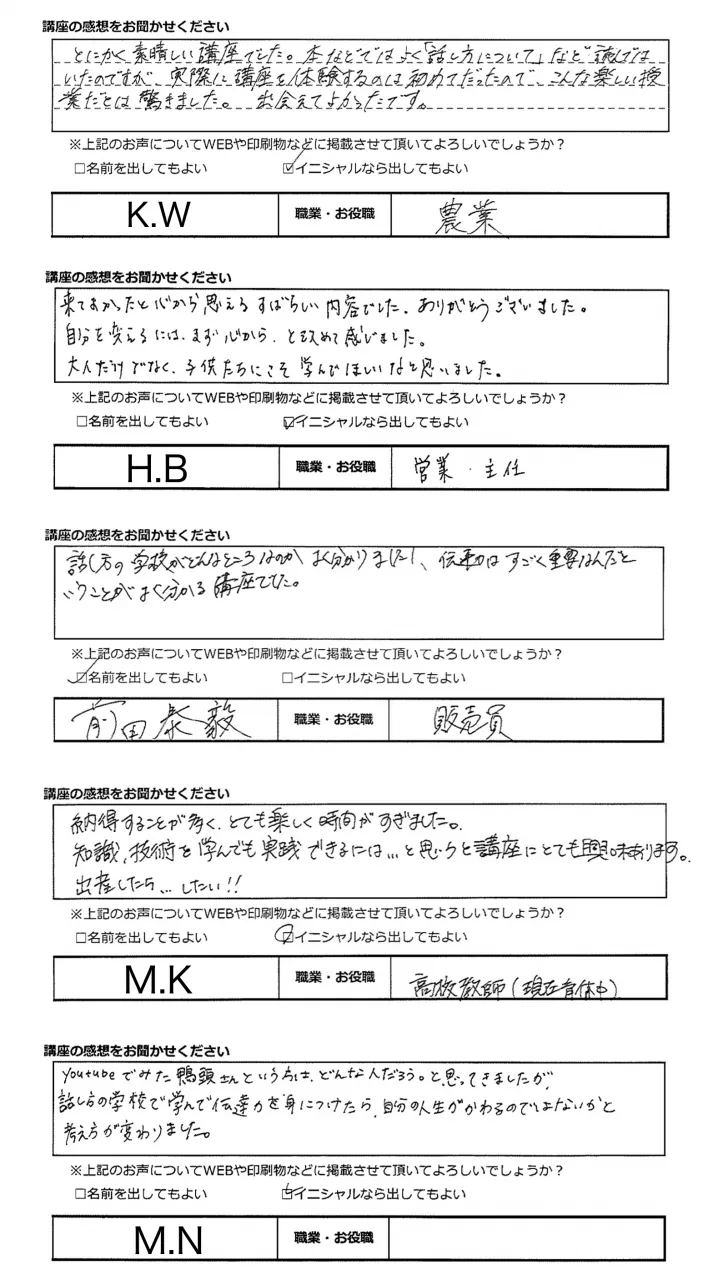 講座の感想をお聞かせください
とにかく素晴しい講座でした。本などではよく「話し方について」など読んでは
いたのですが、実際に講座を体験するのは初めてだったので、こんな楽しい授
業だとは驚きました。出会えてよかったです。
※上記のお声についてWEBや印刷物などに掲載させて頂いてよろしいでしょうか？
□名前を出してもよい ☑イニシャルなら出してもよい
K.W 職業・お役職 農業
講座の感想をお聞かせください
来てよかったと心から思えるすばらしい内容でした。ありがとうございました。
自分を変えるには、まず心から、と改めて感じました。
大人だけでなく、子供たちにこそ学んでほしいなと思いました。
※上記のお声についてWEBや印刷物などに掲載させて頂いてよろしいでしょうか？
□名前を出してもよい ☑イニシャルなら出してもよい
H.B 職業・お役職 営業・主任
講座の感想をお聞かせください
話し方の学校がどんなところなのか よく分かりましたし、伝達力はすごく重要なんだと
いうことがよく分かる講座でした。
※上記のお声についてWEBや印刷物などに掲載させて頂いてよろしいでしょうか？
☑名前を出してもよい □イニシャルなら出してもよい
前田泰毅 職業・お役職 販売員
講座の感想をお聞かせください
納得することが多く、とても楽しく時間がすぎました。
知識、技術を学んでも実践できるには…と思うと講座にとても興味あります。
出産したら…したい!!
※上記のお声についてWEBや印刷物などに掲載させて頂いてよろしいでしょうか？
□名前を出してもよい ☑イニシャルなら出してもよい
M.K 職業・お役職 高校教師(現在育休中)
講座の感想をお聞かせください
Youtubeでみた鴨頭さんという方は、どんな人だろう。と思ってきましたが、
話し方の学校で学んで伝達力を身につけたら、自分の人生がかわるのではないかと
考え方が変わりました。
※上記のお声についてWEBや印刷物などに掲載させて頂いてよろしいでしょうか？
□名前を出してもよい ☑イニシャルなら出してもよい
M.N 職業・お役職